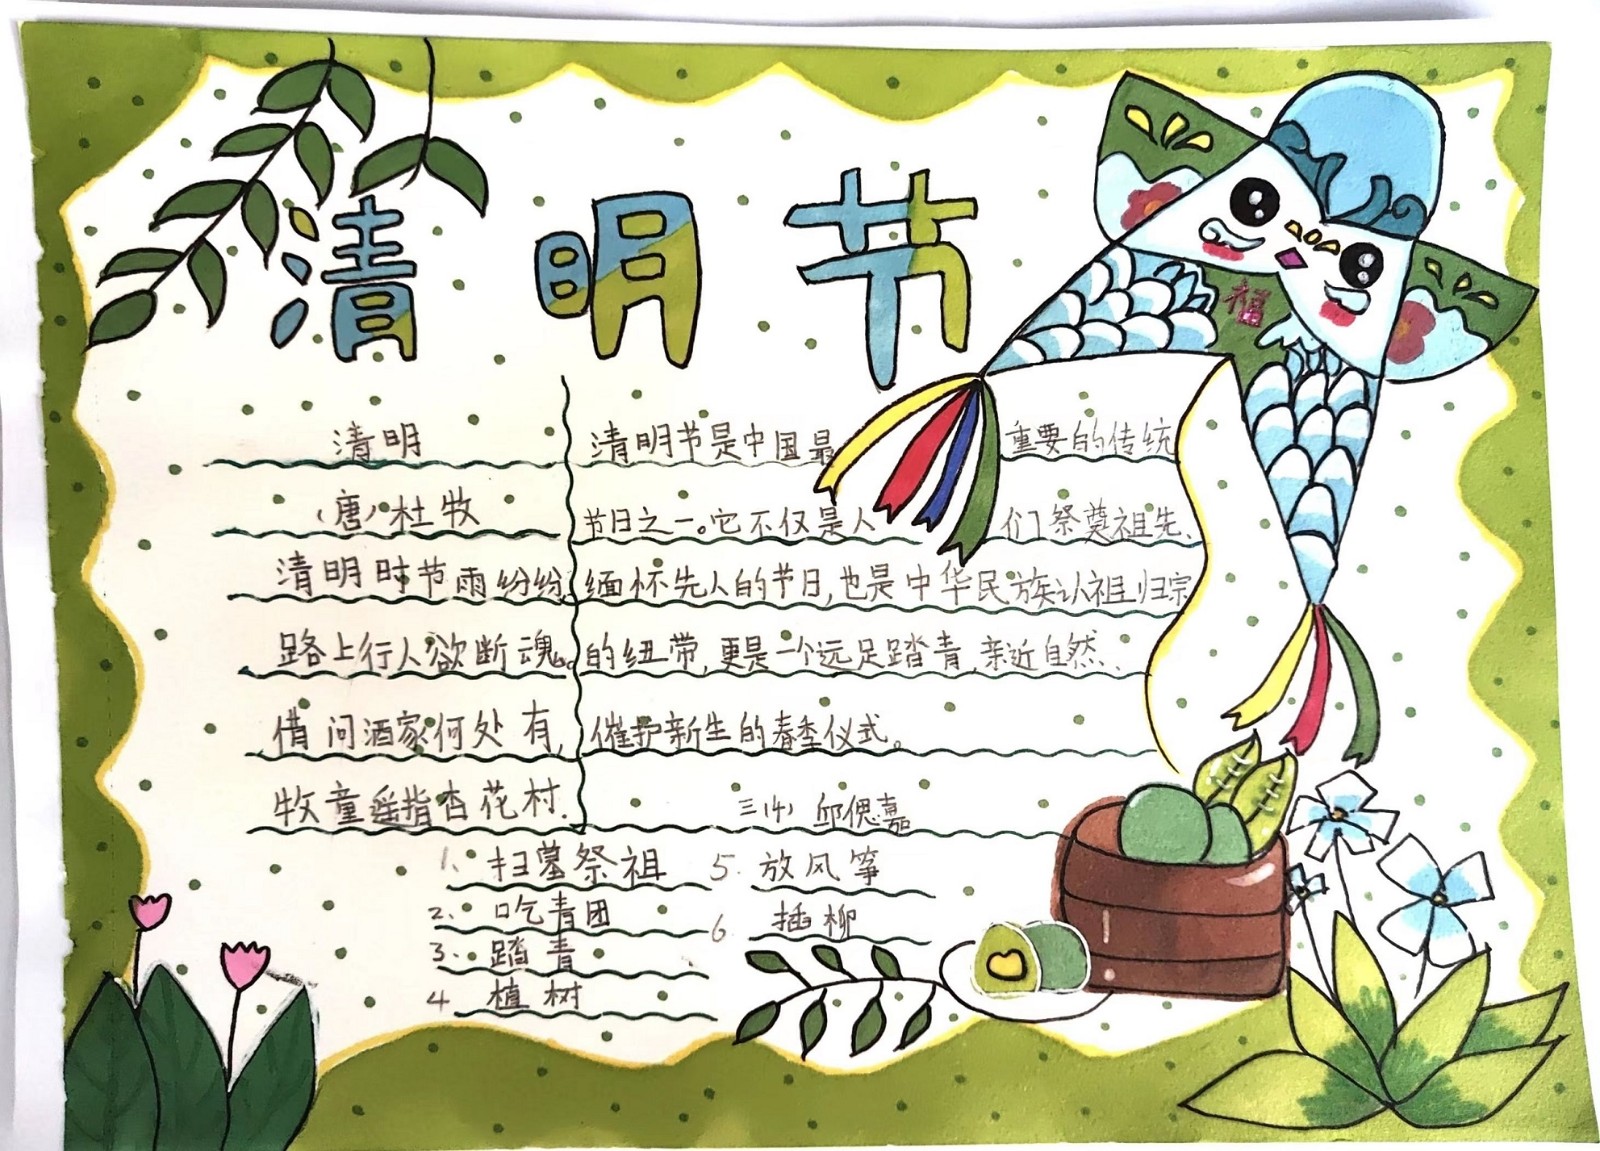 清明节
福
清明
（唐）杜牧
清明时节雨纷纷
路上行人欲断魂。
借问酒家何处有,
牧童遥指杏花村.
清明节是中国最重要的传统
节日之一。它不仅是人们祭奠祖先、
缅怀先人的节日,也是中华民族认祖归宗
的纽带,更是一个远足踏青,亲近自然、
催护新生的春季仪式。
三(4) 邱偲嘉
1. 扫墓祭祖
2. 吃青团
3. 踏青
4 植树
5. 放风筝
6 插柳